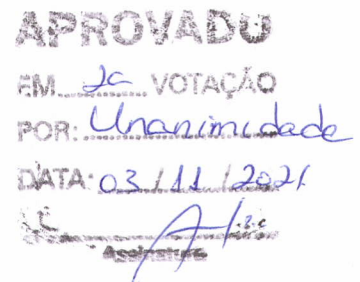 APROVADO
EM 2ª VOTAÇÃO
POR: Unanimidade
DATA: 03/11/2021
Assinatura